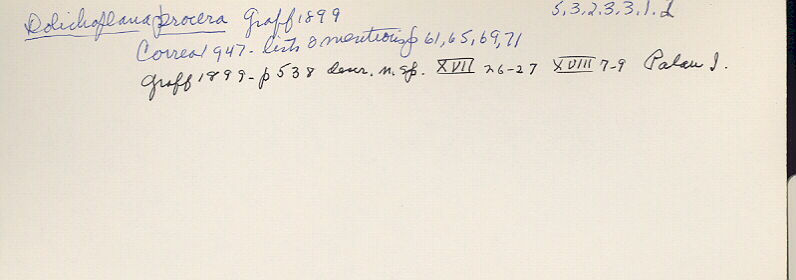 Dolichoplana procera Graff 1899 5.3.2.3.3.1.2
Correa 1947 - lists & mentions p 61, 65, 69, 71
Graff 1899 - p 538 descr. n. sp. XVII 26-27 XVIII 7-9 Palau I.